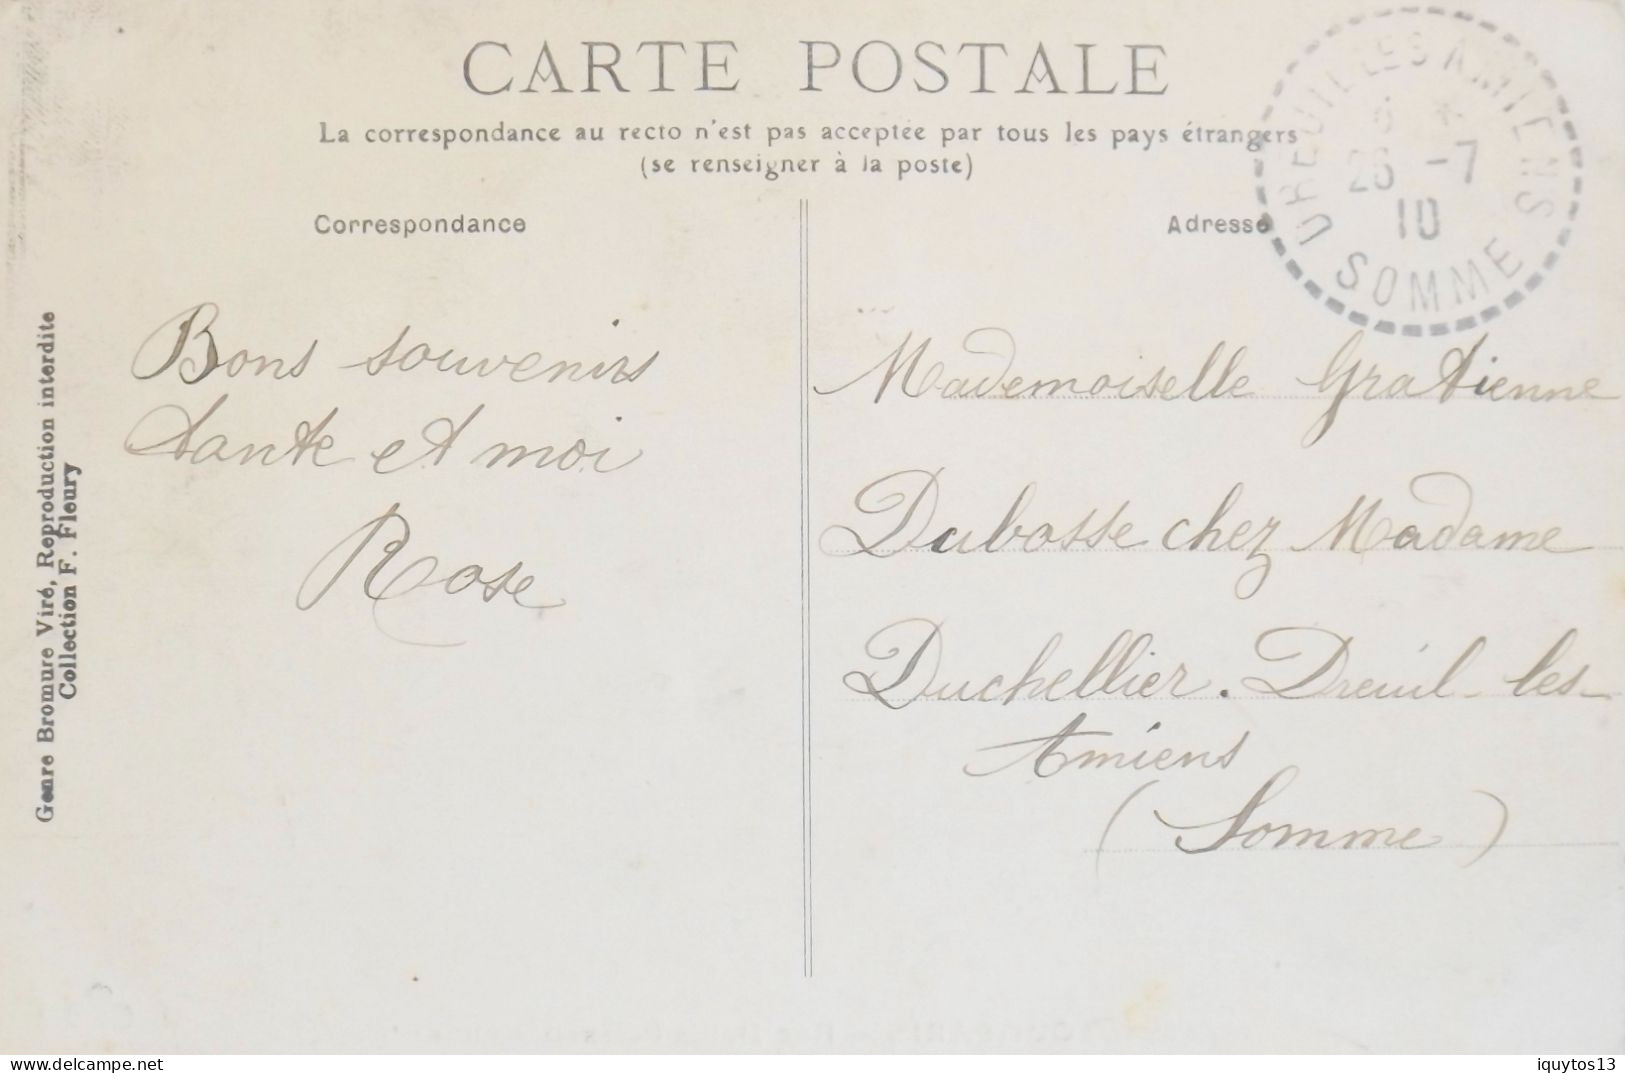 CARTE POSTALE
La correspondance au recto n'est pas acceptée par tous les pays étrangers
(se renseigner à la poste)
Correspondance
Adresse
DREUIL LES AMIENS
26 -7
10
SOMME
Genre Bromure Viré, Reproduction interdite
Collection F. Fleury
Bons souvenirs
tante et moi
Rose
Mademoiselle Gratienne
Dubosse chez Madame
Duchellier. Dreuil-les-
Amiens
(Somme)
www.delcampe.net
iquytos13